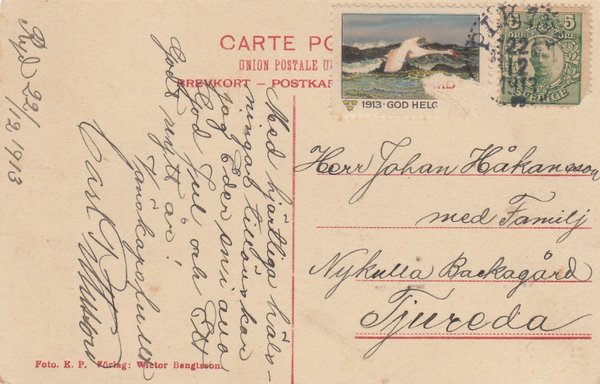 CARTE PO
UNION POSTALE U
BREVKORT - POSTKAR
1913·GOD HELG
5 5
ÖRE ÖRE
SVERIGE
22
12
Ryd 22/
/12 1913
Med hjärtliga häls-
ningar tillönskar
jag Eder smi ano
God Jul och Ett
Godt nytt år!
Vänskapsfullt
Carl
Herr Johan Håkansson
med Familj
Nykulla Backagård
Tjureda
Foto. E. P. Förlag: Wictor Bengtsson.